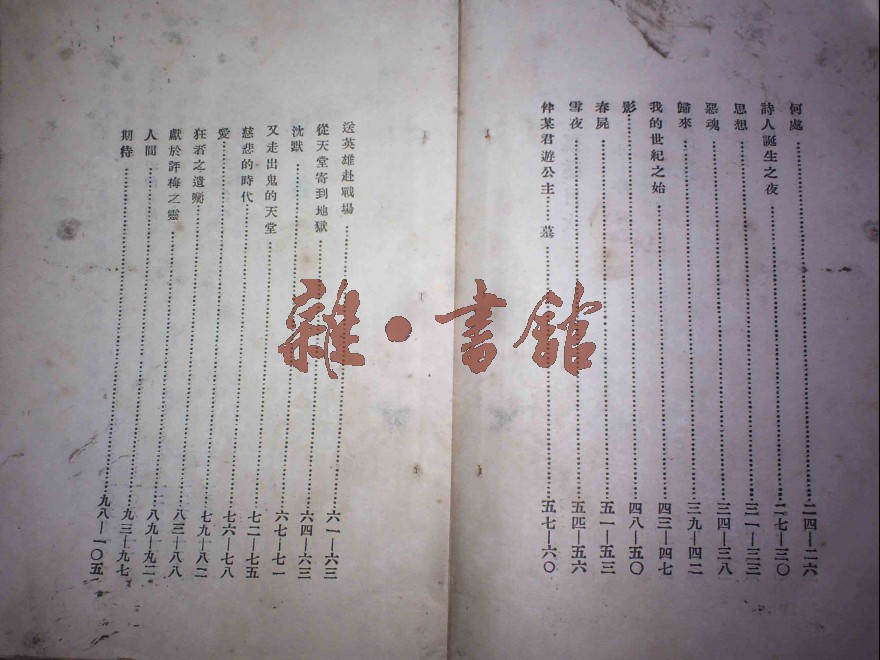 何處 二四—二六
詩人誕生之夜 二七—三〇
思想 三一—三三
惡魂 三四—三八
歸來 三九—四二
我的世紀之始 四三—四七
影 四八—五〇
春屍 五一—五三
雪夜 五四—五六
伴某君遊公主……墓 五七—六〇
送英雄赴戰場 六一—六三
從天堂寄到地獄 六四—六三
沈默 六七—七一
又走出鬼的天堂 七二—七五
慈悲的時代 七六—七八
愛 七九—八二
狂者之遺囑 八三—八八
獻於評梅之靈 八九—九二
人間 九三—九七
期待 九八—一〇五
雜·書館